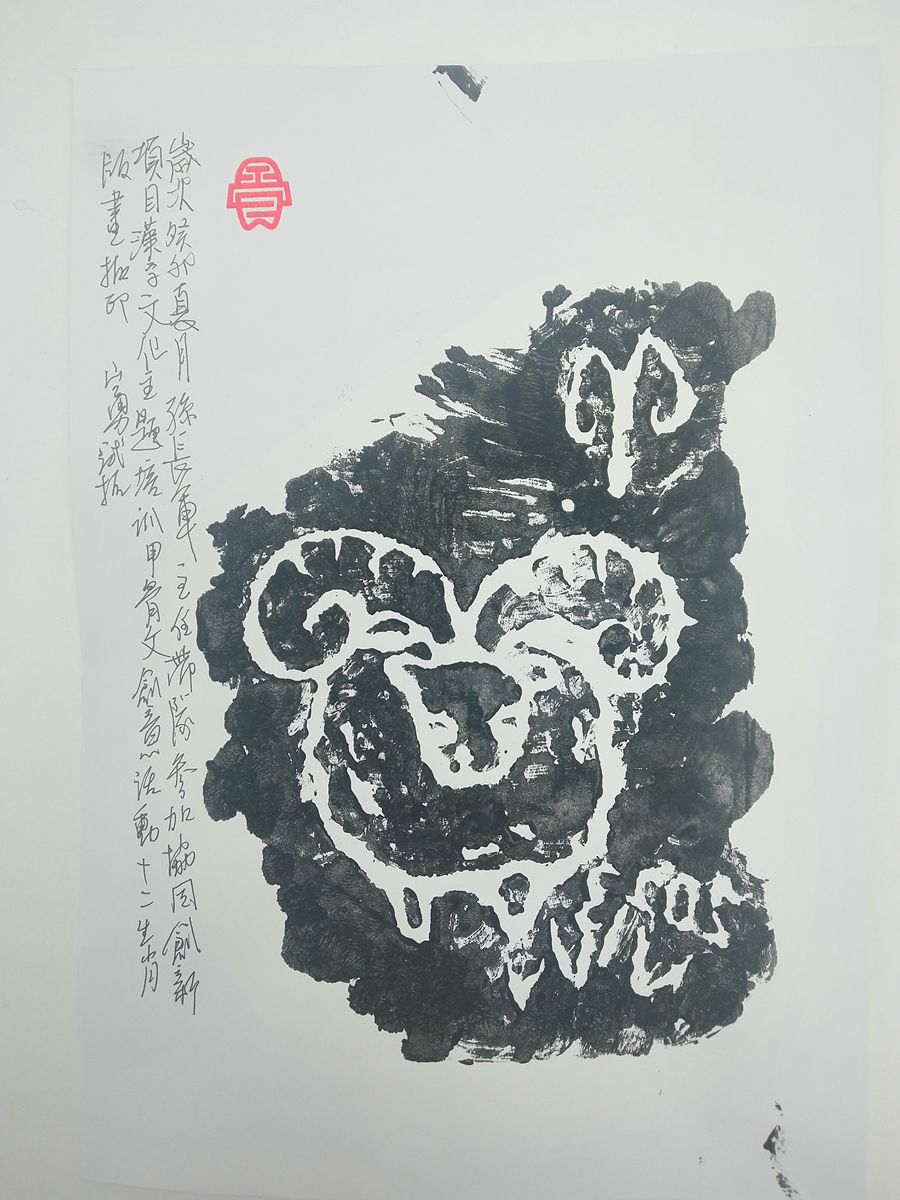 歲次癸卯夏月 孫長軍主任帶隊參加協同創新
項目漢字文化主題培訓甲骨文創意活動十二生肖
版畫拓印 勇試拓